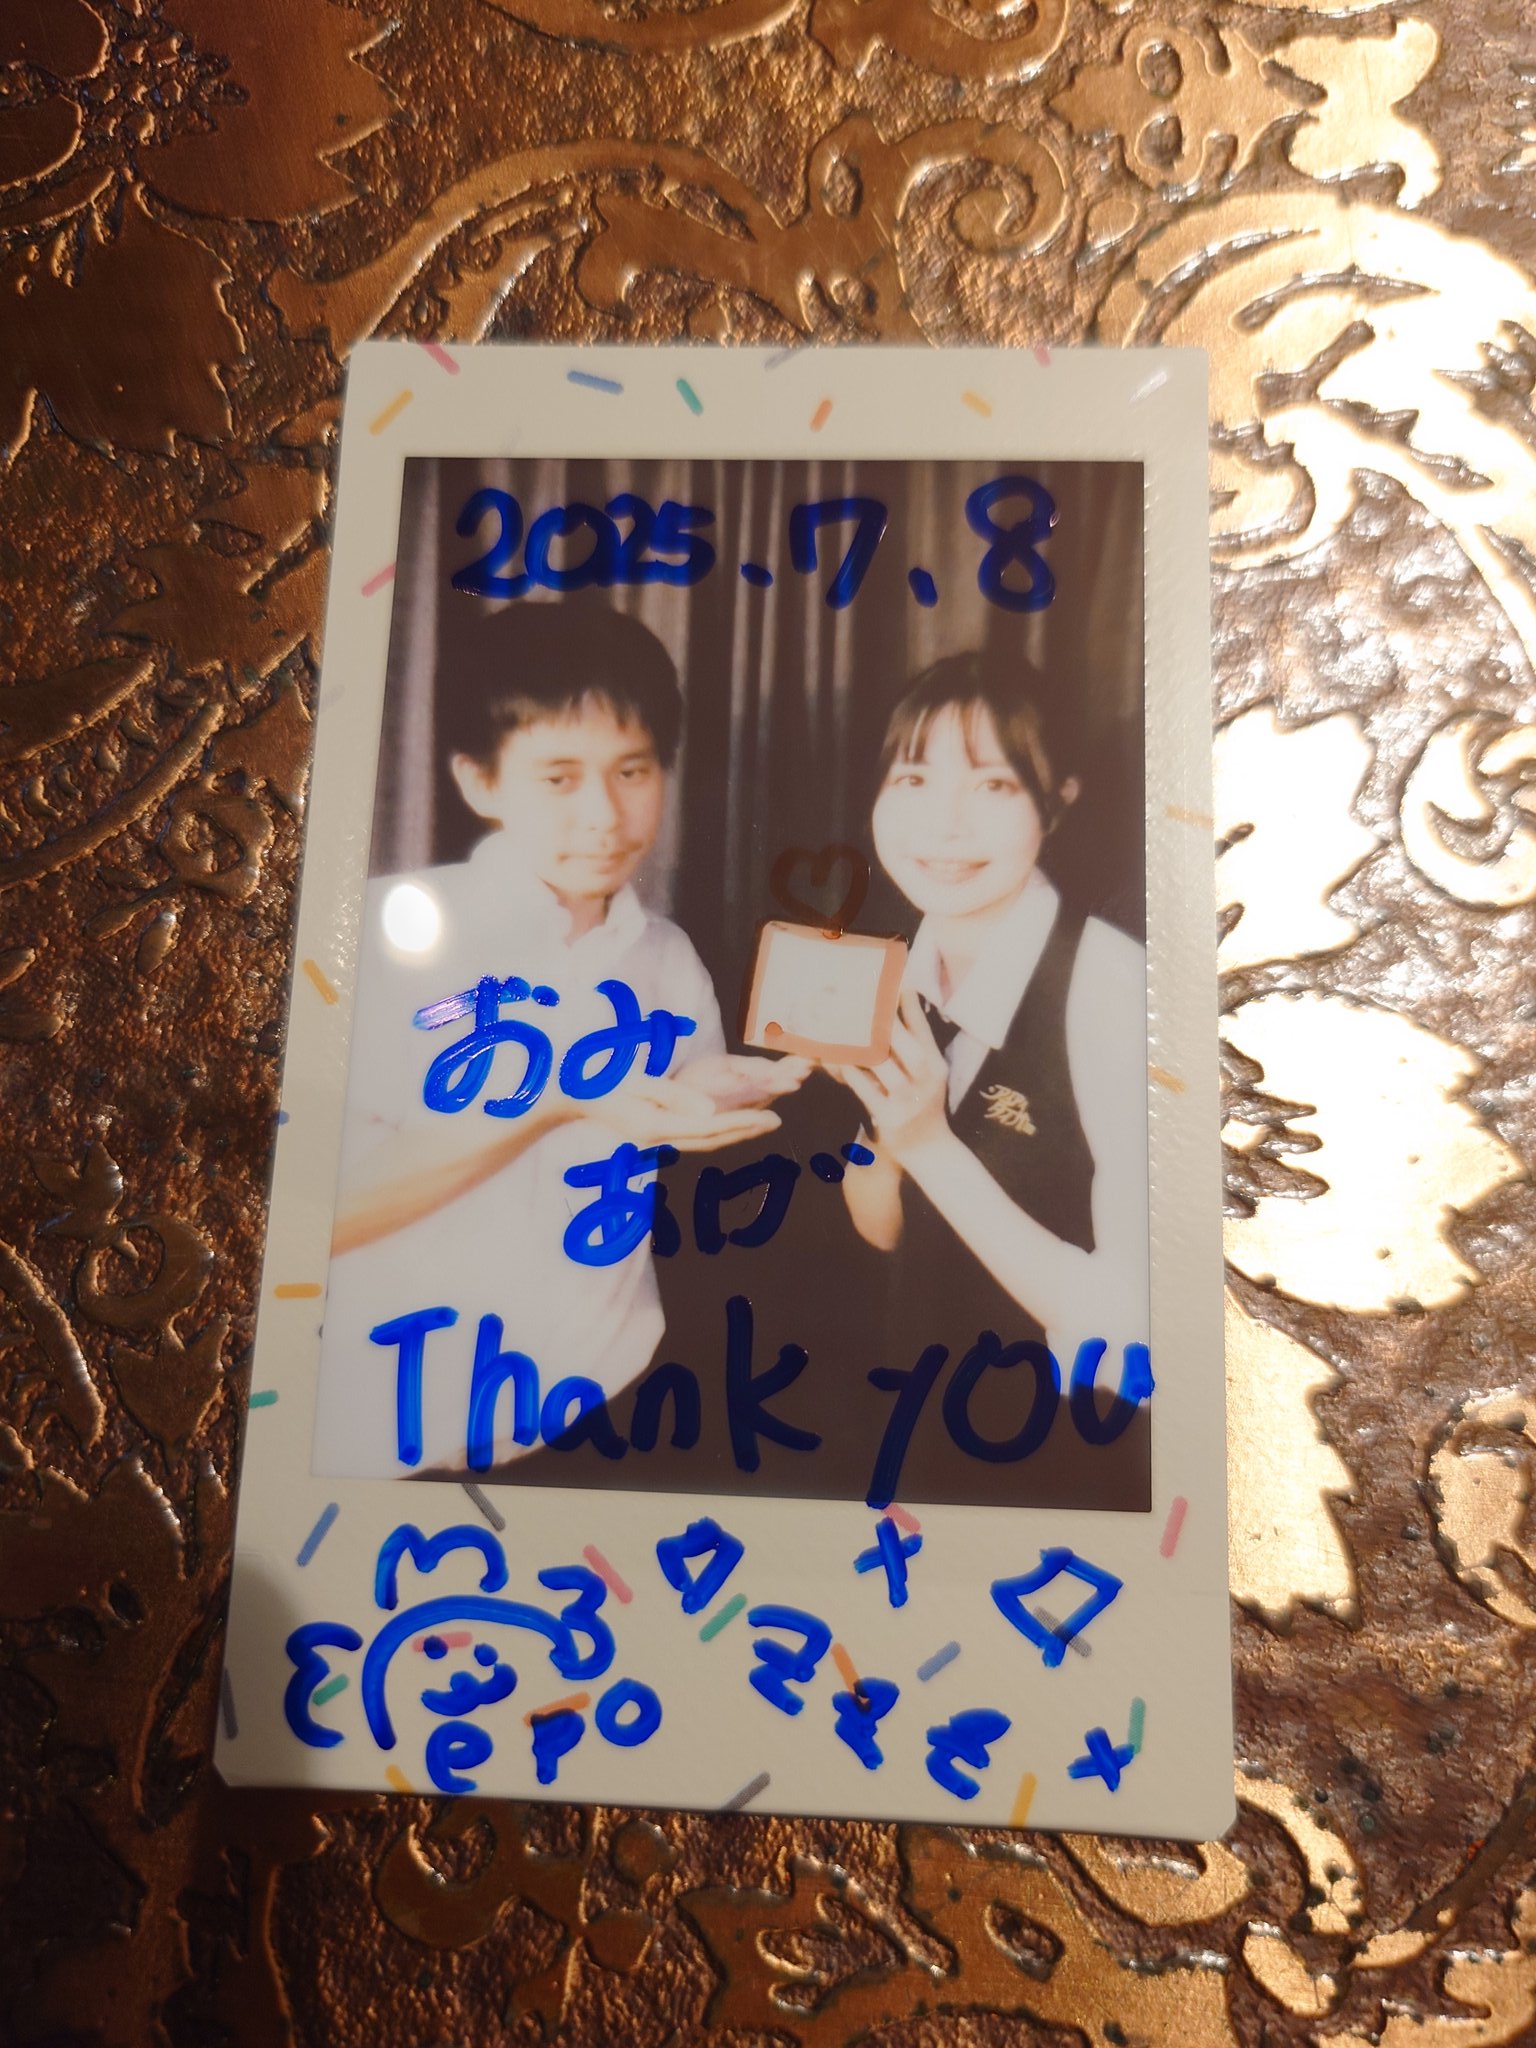 2025.7.8
おみ
あげ
Thank you
epo